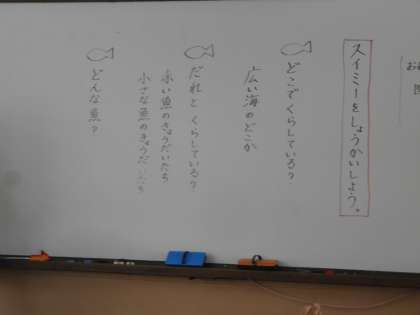 スイミーをしょうかいしよう。
どこでくらしている?
広い海のどこか
だれとくらしている?
赤い魚のきょうだいたち
小さな魚のきょうだいたち
どんな魚?